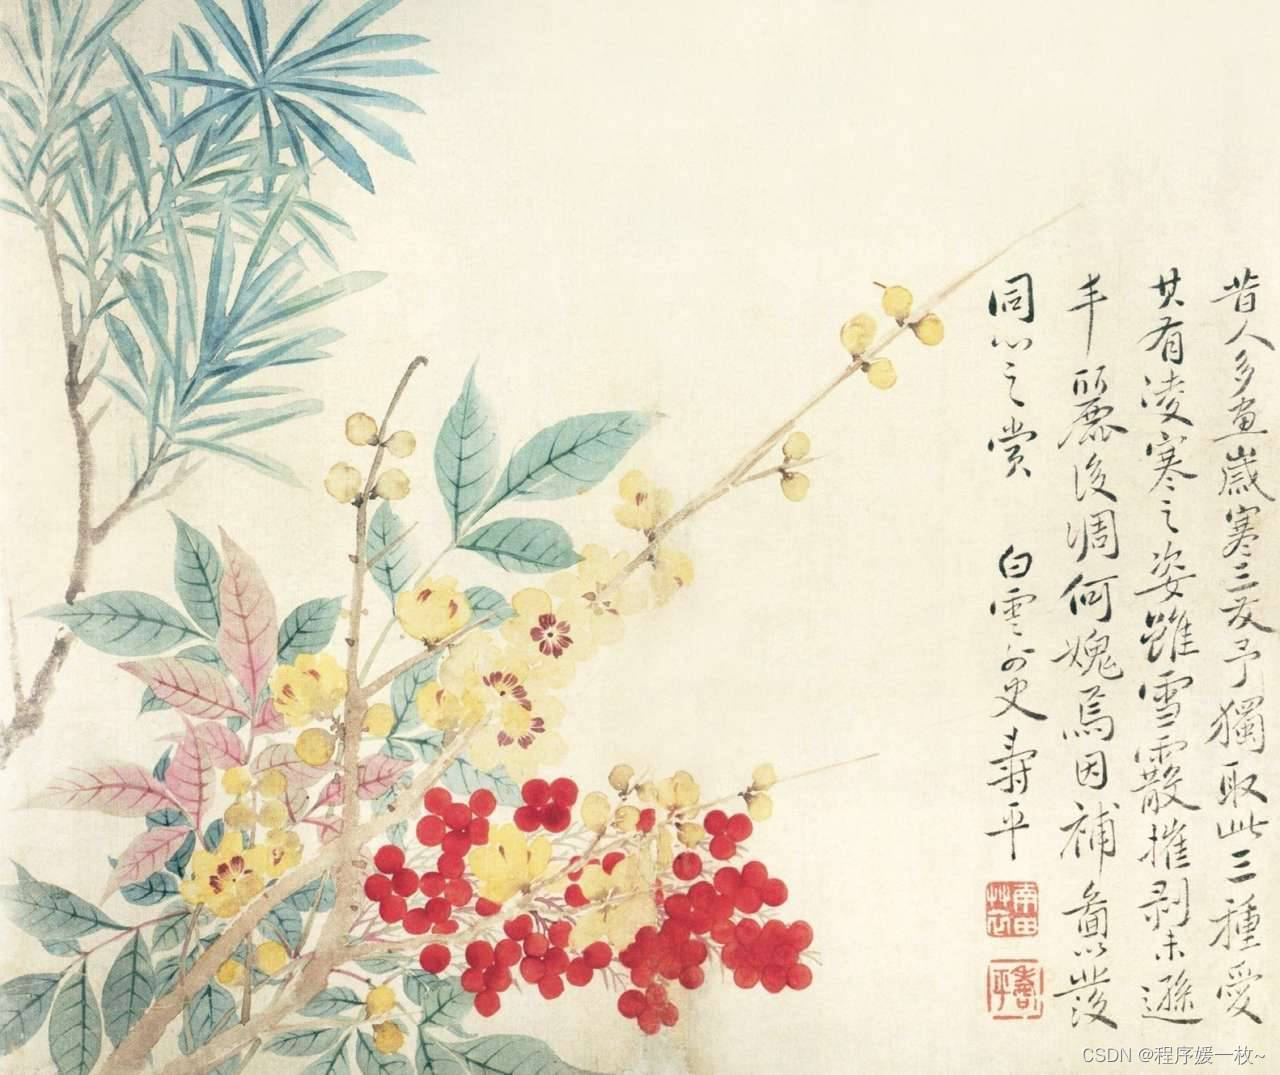 昔人多畫歲寒三友予獨取此三種愛
其有淩寒之姿雖雪霰摧剥未遜
丰麗後凋何媿焉因補圖以
同心之賞 白雲外史壽平
南田
壽平
CSDN @程序媛一枚~